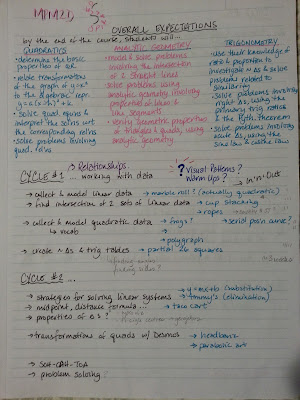 MPM2D
OVERALL EXPECTATIONS
by the end of the course, students will...
QUADRATICS
• determine the basic properties of
• relate transformations of the graph of y=x² to the algebraic repr. y=a(x-h)²+k
• solve quad. eqns & interpret the solns wrt the corresponding rel'ns
• solve problems involving quad. rel'ns
ANALYTIC GEOMETRY
• model & solve problems involving the intersection of 2 straight lines
• solve problems using analytic geometry involving properties of lines & line segments
• verify geometric properties of triangles & quads, using analytic geometry.
TRIGONOMETRY
• use their knowledge of ratio & proportion to investigate ~Δs & solve problems related to similarity
• solve problems involving right Δs, using the primary trig ratios & the Pyth. theorem
• solve problems involving acute Δs, using the sine law & cosine law
→ Relationships
CYCLE #1
working with data
? Visual Patterns?
Warm Ups?
→ in 'n' Out
→ collect & model linear data
→ marble roll? (actually quadratic)
→ find intersection of 2 sets of linear data
→ cup stacking
→ ropes
→ collect & model quadratic data
→ frogs?
→ aerial pain curve?
→ vocab
→ polygraph
→ create ~Δs & trig tables
→ partial 26 squares
finding sides?
CYCLE #2
→ strategies for solving linear systems
→ y=texto (substitution)
→ midpoint, distance formula...
→ tommy's (elimination)
→ taxi cart
→ properties of Δs?
→ transformations of quads w/ Desmos
→ headbanz
→ parabolic art
→ SOH-CAH-TOA
→ problem solving